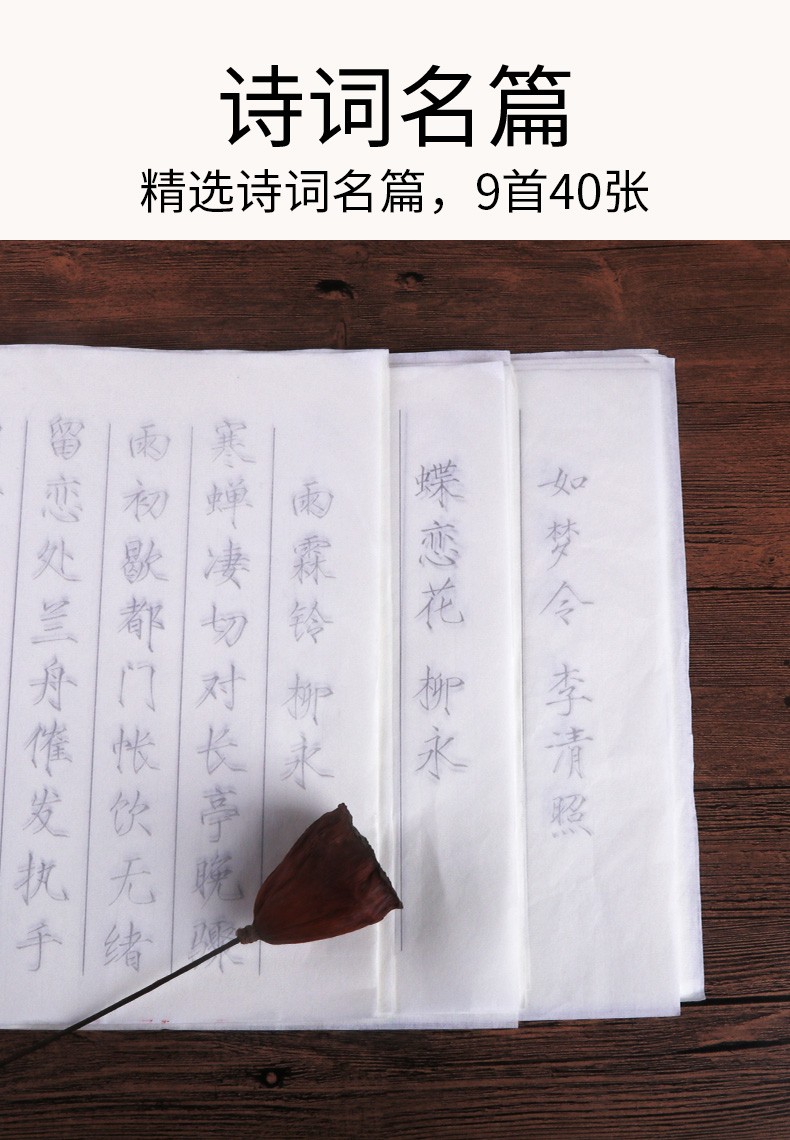 诗词名篇
精选诗词名篇，9首40张
如梦令 李清照
蝶恋花 柳永
雨霖铃 柳永
寒蝉凄切对长亭晚骤
雨初歇都门帐饮无绪
留恋处兰舟催发执手